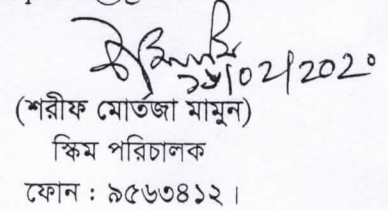 ১৯/০২/২০২০
(শরীফ মোর্তজা মামুন)
স্কিম পরিচালক
ফোন : ৯৫৬৩৪১২।